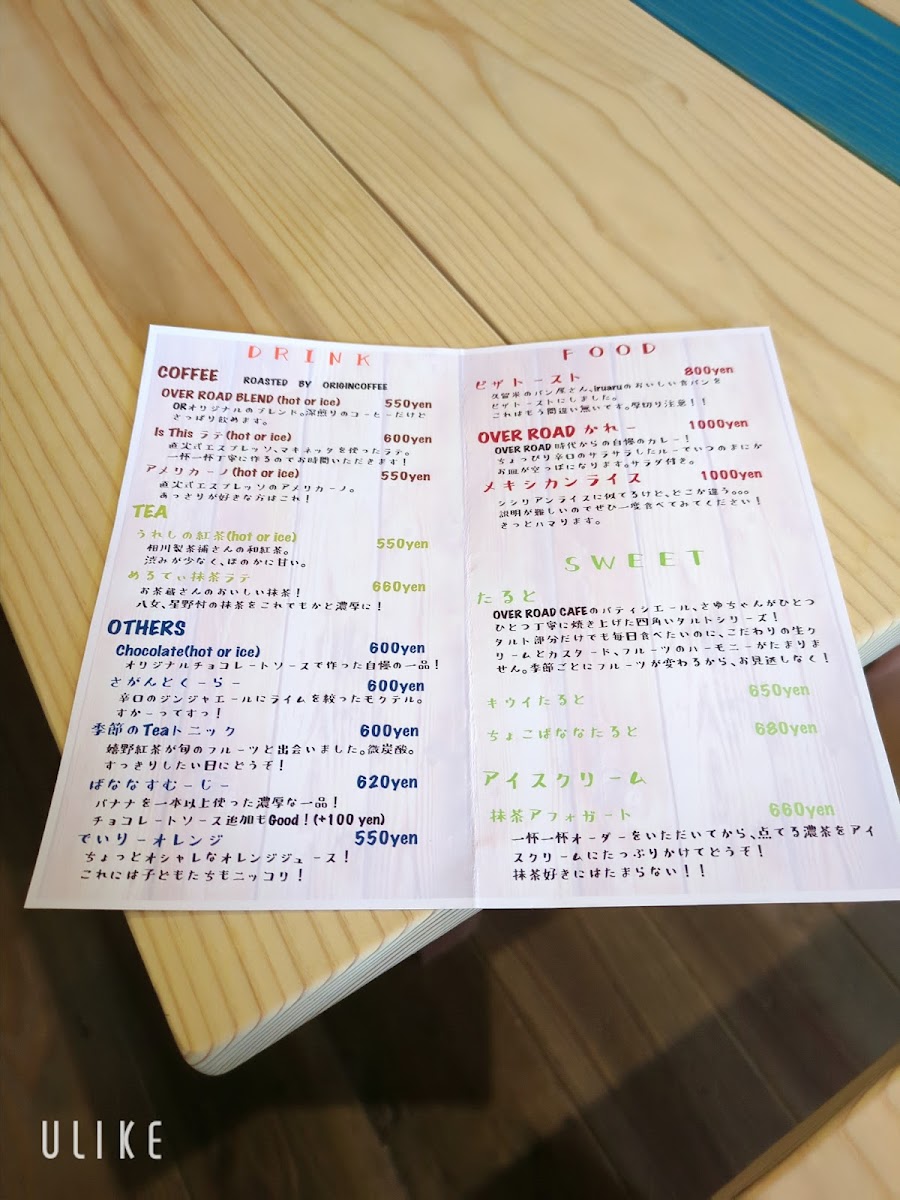 DRINK
COFFEE ROASTED BY ORIGINCOFFEE
OVER ROAD BLEND (hot or ice) 550yen
ORオリジナルのブレンド。深煎りのコーヒーだけど
さっぱり飲めます。
Is This ラテ(hot or ice) 600yen
直火式エスプレッソ、マキネッタを使ったラテ。
一杯一杯丁寧に作るのでお時間いただきます!
アメリカーノ(hot or ice) 550yen
直火式エスプレッソのアメリカーノ。
あっさりが好きな方はこれ!
TEA
うれしの紅茶(hot or ice) 550yen
相川製茶舗さんの和紅茶。
渋みが少なく、ほのかに甘い。
めるてぃ抹茶ラテ 660yen
お茶蔵さんのおいしい抹茶!
八女、星野村の抹茶をこれでもかと濃厚に!
OTHERS
Chocolate(hot or ice) 600yen
オリジナルチョコレートソースで作った自慢の一品!
さがんとくーらー 600yen
辛口のジンジャエールにライムを絞ったモクテル。
すかーってすっ!
季節のTeaトニック 600yen
嬉野紅茶が旬のフルーツと出会いました。微炭酸。
すっきりしたい日にどうぞ!
ばななすむーじー 620yen
バナナを一本以上使った濃厚な一品!
チョコレートソース追加もGood!(+100 yen)
でいりーオレンジ 550yen
ちょっとオシャレなオレンジジュース!
これには子どもたちもニッコリ!
FOOD
ピザトースト 800yen
久留米のパン屋さん、iruaruのおいしい食パンを
ピザトーストにしました。
これはもう間違い無いです。厚切り注意!!
OVER ROAD かれー 1000yen
OVER ROAD 時代からの自慢のカレー!
ちょっぴり辛口のサラサラしたルーでいつのまにか
お皿が空っぽになります。サラダ付き。
メキシカンライス 1000yen
シシリアンライスに似てるけど、どこか違う。。。
説明が難しいのでぜひ一度食べてみてください!
きっとハマります。
SWEET
たると
OVER ROAD CAFEのパティシエール、さゆちゃんがひとつ
ひとつ丁寧に焼き上げた四角いタルトシリーズ!
タルト部分だけでも毎日食べたいのに、こだわりの生ク
リームとカスタード、フルーツのハーモニーがたまりま
せん。季節ごとにフルーツが変わるから、お見逃しなく!
キウイたると 650yen
ちょこばななたると 680yen
アイスクリーム
抹茶アフォガート 660yen
一杯一杯オーダーをいただいてから、点てる濃茶をアイ
スクリームにたっぷりかけてどうぞ!
抹茶好きにはたまらない!!
ULIKE